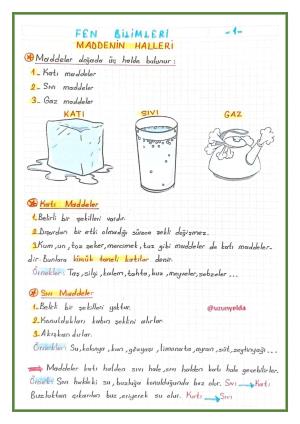 FEN BİLİMLERİ
-1-
MADDENİN HALLERİ
Maddeler doğada üç halde bulunur:
1- Katı maddeler
2- Sıvı maddeler
3- Gaz maddeler
KATI SIVI GAZ
Katı Maddeler
1. Belirli bir şekilleri vardır.
2. Dışarıdan bir etki olmadığı sürece şekli değişmez.
3. Kum, un, toz şeker, mercimek, tuz gibi maddeler de katı maddeler-
dir. Bunlara küçük taneli katılar denir.
Örnekler: Taş, silgi, kalem, tahta, buz, meyveler, sebzeler ...
Sıvı Maddeler
1. Belirli bir şekilleri yoktur.
@uzunyelda
2. Konuldukları kabın şeklini alırlar.
3. Akışkandırlar.
Örnekler: Su, kolonya, kan, gözyaşı, limonata, ayran, süt, zeytinyağı...
Maddeler katı halden sıvı hale, sıvı halden katı hale geçebilirler.
Örnek: Sıvı haldeki su, buzluğa konulduğunda buz olur. Sıvı → Katı
Buzluktan çıkarılan buz, eriyerek su olur. Katı → Sıvı